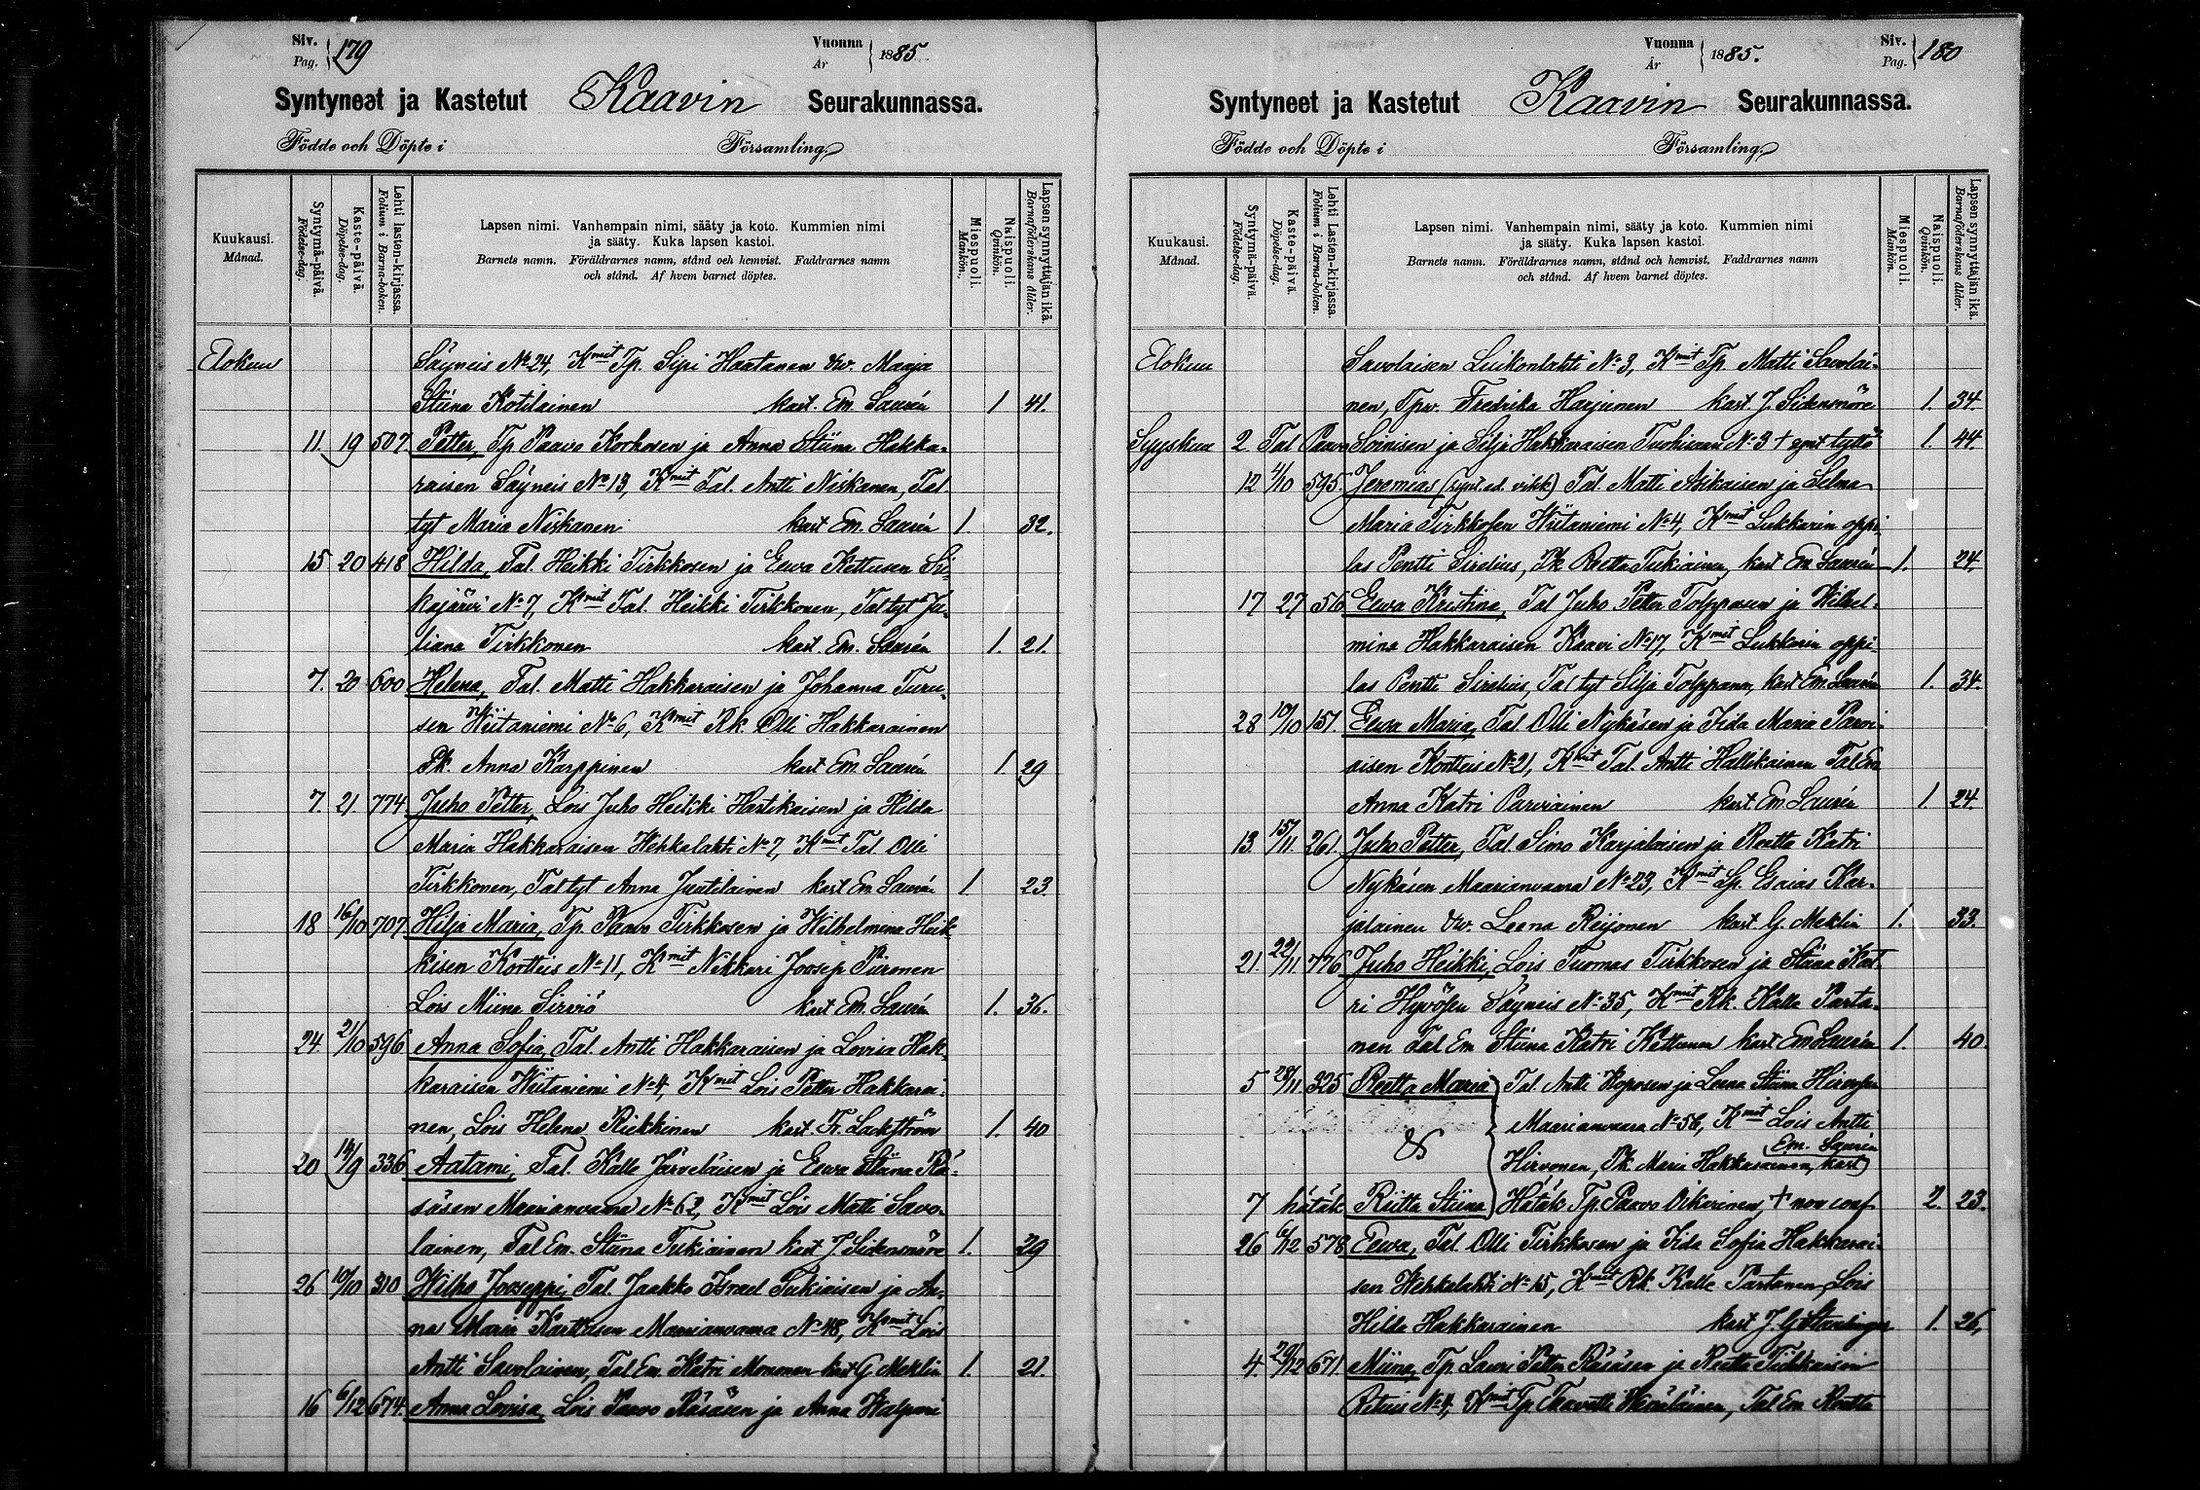 Siv. Pag. 179 Vuonna År 1885.
Syntyneet ja Kastetut Kaavin Seurakunnassa.
Födde och Döpte i Församling.
Kuukausi. Månad.
Syntymä-päivä. Födelse-dag.
Kaste-päivä. Döpelse-dag.
Lehti lasten-kirjassa. Folium i Barna-boken.
Lapsen nimi. Vanhempain nimi, sääty ja koto. Kummien nimi
ja sääty. Kuka lapsen kastoi.
Barnets namn. Föräldrarnes namn, stånd och hemvist. Faddrarnes namn
och stånd. Af hvem barnet döptes.
Miespuoli. Mankön.
Naispuoli. Qvinkön.
Lapsen synnyttäjän ikä. Barnaföderskans ålder.
Elokuu Säyneis No 24, Kmit Tp. Sipi Haatanen vw. Maaja
Stiina Kotilainen kast. Em. Saurén 1 41.
11. 19 507. Petter, Tp Paavo Korhosen ja Anna Stiina Hakka-
raisen Säyneis No 13, Kmit Tal. Antti Niskanen, Tal.
tyt Maria Niskanen kast Em. Saurén 1. 32.
15 20 418 Hilda, Tal. Heikki Tirkkosen ja Eewa Kettusen Si-
kajärvi No 7, Kmit Tal. Heikki Tirkkonen, Tal tyt Ju-
liana Tirkkonen kast. Em. Saurén 1. 21.
7. 20 600 Helena, Tal. Matti Hakkaraisen ja Johanna Turu-
sen Wiitaniemi No 6, Kmit Rk. Olli Hakkarainen
Pk. Anna Karppinen kast Em. Saurén 1. 29
7. 21. 774 Juho Petter, Lois Juho Heikki Hartikaisen ja Hilda
Maria Hakkaraisen Wehkalahti No 7, Kmit Tal. Olli
Tirkkonen, Tal tyt Anna Juutilainen kast Em Saurén 1. 23.
18 16/10 707. Hilja Maria, Tp. Paavo Tirkkosen ja Wilhelmina Heik-
kisen Kortteis No 11, Kmit Nikkari Joosep Piironen
Lois Miina Sirviö kast Em. Saurén 1. 36.
24. 21/10 596 Anna Sofia, Tal. Antti Hakkaraisen ja Lovisa Hak-
karaisen Wiitaniemi No 4, Kmit Lois Petter Hakkarai-
nen, Lois Helena Riekkinen kast. Fr. Lackström 1. 40
20 336 Aatami, Tal. Kalle Järveläisen ja Eewa Stiina Rä-
säsen Maarianvaara No 62, Kmit Lois Matti Savo-
lainen, Tal Em. Stiina Tukiainen kast J. Sidensnöre 1. 29
26 10/10 310 Wilho Jooseppi, Tal. Jaakko Israel Tukiaisen ja An-
na Maria Karttusen Maarianvaara No 48, Kmit Lois
Antti Savolainen, Tal Em. Katri Mononen kast G Meklin 1. 21.
16 6/12 674. Anna Lovisa, Lois Paavo Räsäsen ja Anna Walpuri
Vuonna År 1885. Siv. Pag. 180
Syntyneet ja Kastetut Kaavin Seurakunnassa.
Födde och Döpte i Församling.
Kuukausi. Månad.
Syntymä-päivä. Födelse-dag.
Kaste-päivä. Döpelse-dag.
Lehti Lasten-kirjassa. Folium i Barna-boken.
Lapsen nimi. Vanhempain nimi, sääty ja koto. Kummien nimi
ja sääty. Kuka lapsen kastoi.
Barnets namn. Föräldrarnes namn, stånd och hemvist. Faddrarnes namn
och stånd. Af hvem barnet döptes.
Miespuoli. Mankön.
Naispuoli. Qvinkön.
Lapsen synnyttäjän ikä. Barnaföderskans ålder.
Elokuu Savolaisen Luikonlahti No 3, Kmit Tp. Matti Savolai-
nen, Tpw. Fredrika Harjunen kast J. Sidensnöre 1. 34.
Syyskuu 2 Tal Paavo Soinisen ja Silja Hakkaraisen Tuohisaari No 3 + synt tyttö 1. 44.
12 4/10 595 Jeremias (synt. ed. vihk) Tal Matti Asikaisen ja Selma
Maria Tirkkosen Wiitaniemi No 4, Kmit Lukkarin oppi-
las Pentti Sirelius, Pk Reetta Tukiainen, kast Em Saurén 1. 24.
17 27 56 Eewa Kristina, Tal Juho Petter Tolppasen ja Wilhel-
mina Hakkaraisen Kaavi No 17, Kmit Lukkarin oppi-
las Pentti Sirelius, Tal tyt Silja Tolppanen, kast Em. Saurén 1. 34.
28 10/10 157. Eewa Maria, Tal. Olli Nykäsen ja Iida Maria Parvi-
aisen Kortteis No 21, Kmit Tal. Antti Hallikainen Tal Em
Anna Katri Parviainen kast Em Saurén 1. 24.
13. 15/11. 261. Juho Petter, Tal. Simo Karjalaisen ja Reetta Katri
Nykäsen Maarianvaara No 23, Kmit Lp. Esaias Kar-
jalainen vw. Leena Reijonen kast G. Meklin 1. 33.
21. 22/11 776 Juho Heikki, Lois Tuomas Tirkkosen ja Stiina Kat-
ri Hyvösen Säyneis No 35, Kmit Rk. Kalle Parta-
nen Tal Em Stiina Katri Kettunen kast Em Saurén 1. 40.
5 28/11 325 Reetta Maria Tal. Antti Koposen ja Leena Stiina Hirvosen
Maarianvaara No 58, Kmit Lois Antti
& Hirvonen, Pk Maria Hakkarainen, kast Em. Saurén
7 hätäk Riitta Stiina Hätäk Tp. Paavo Oikarinen, + non conf 2. 23.
26 6/12 578 Eewa, Tal. Olli Tirkkosen ja Iida Sofia Hakkarai-
sen Wehkalahti No 15, Kmit Rk. Kalle Partanen, Lois
Hilda Hakkarainen kast J. G 1. 26.
4. 671. Miina, Tp Lauri Petter Räsäsen ja Reetta
No 4, Kmit Tp Taavetti Wäänäinen, Tal Em Reetta